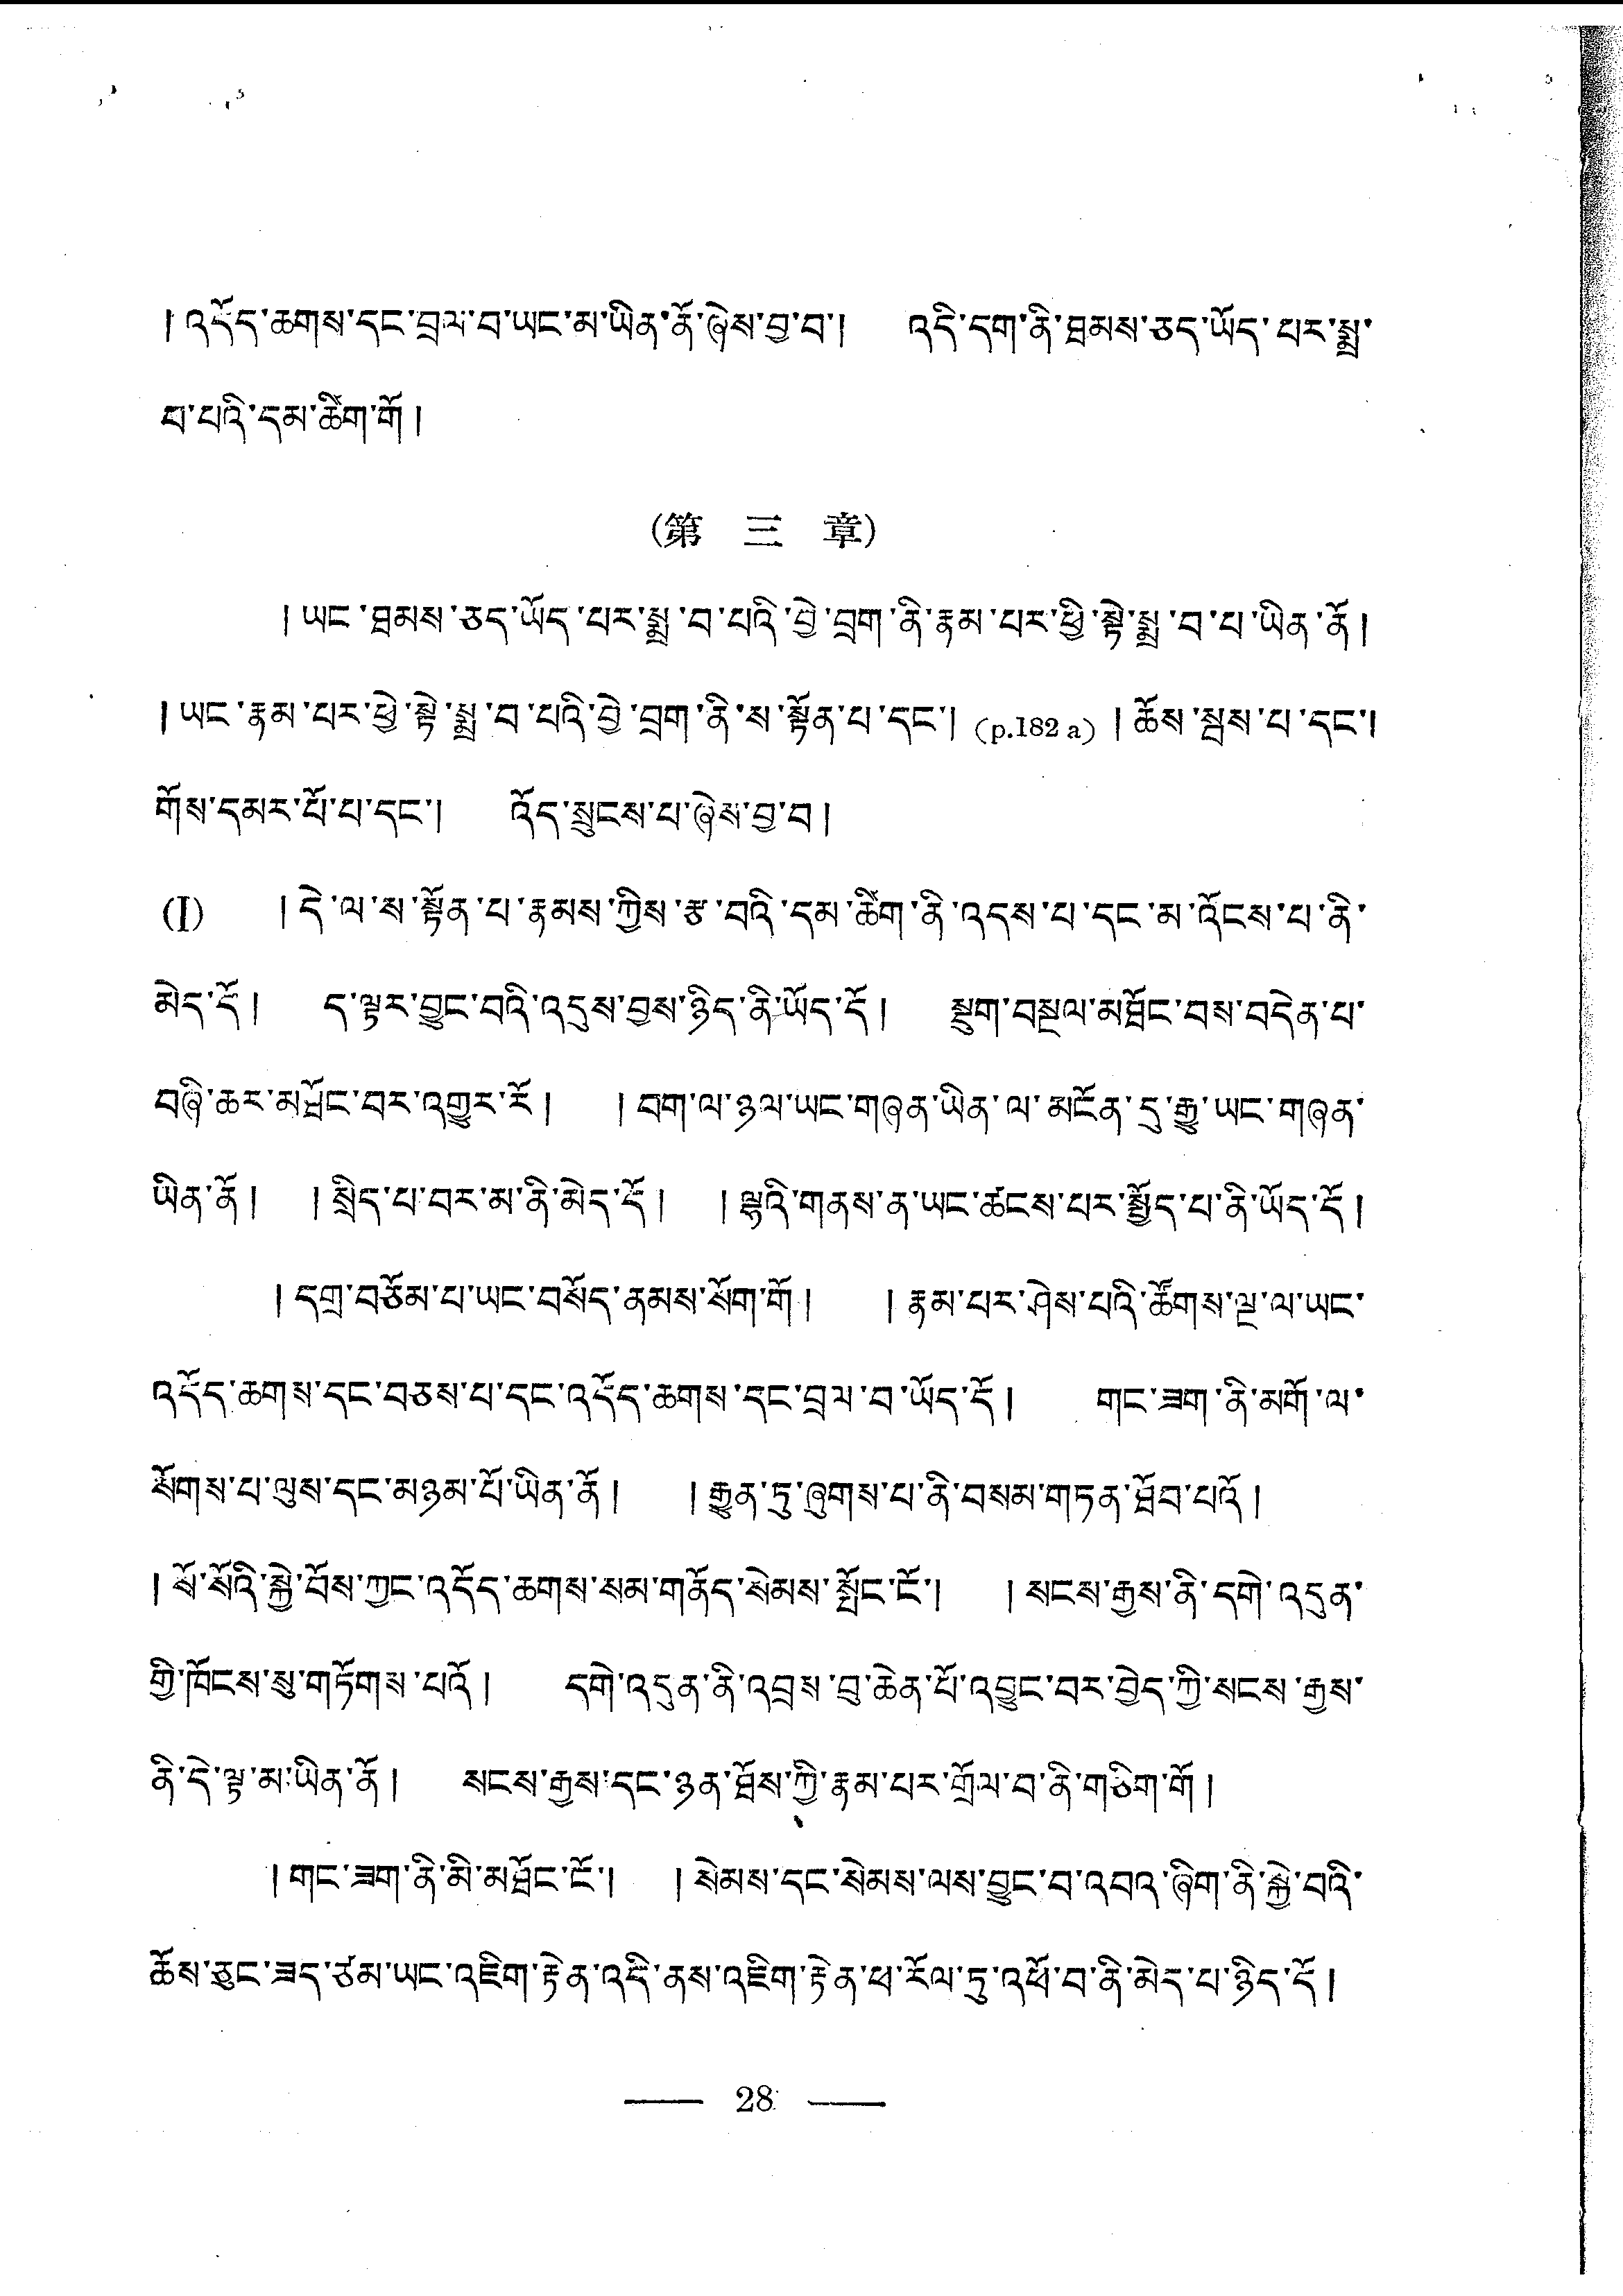 །འདོད་ཆགས་དང་བྲལ་བ་ཡང་མ་ཡིན་ནོ་ཞེས་བྱ་བ། འདི་དག་ནི་ཐམས་ཅད་ཡོད་པར་སྨྲ་
བ་པའི་དམ་ཚིག་གོ།
(第 三 章)
།ཡང་ཐམས་ཅད་ཡོད་པར་སྨྲ་བ་པའི་བྱེ་བྲག་ནི་རྣམ་པར་ཕྱི་སྟེ་སྨྲ་བ་པ་ཡིན་ནོ།
།ཡང་རྣམ་པར་ཕྱེ་སྟེ་སྨྲ་བ་པའི་བྱེ་བྲག་ནི་ས་སྟོན་པ་དང་། (p.182 a) །ཆོས་སྦས་པ་དང་།
གོས་དམར་པོ་པ་དང་། འོད་སྲུངས་པ་ཞེས་བྱ་བ།
(I) །དེ་ལ་ས་སྟོན་པ་རྣམས་ཀྱིས་རྩ་བའི་དམ་ཚིག་ནི་འདས་པ་དང་མ་འོངས་པ་ནི་
མེད་དོ། ད་ལྟར་བྱུང་བའི་འདུས་བྱས་ཉིད་ནི་ཡོད་དོ། སྡུག་བསྔལ་མཐོང་བས་བདེན་པ་
བཞི་ཆར་མཐོང་བར་འགྱུར་རོ། །བག་ལ་ཉལ་ཡང་གཞན་ཡིན་ལ་མངོན་དུ་རྒྱུ་ཡང་གཞན་
ཡིན་ནོ། །སྲིད་པ་བར་མ་ནི་མེད་དོ། །ལྷའི་གནས་ན་ཡང་ཚངས་པར་སྤྱོད་པ་ནི་ཡོད་དོ།
།དགྲ་བཅོམ་པ་ཡང་བསོད་ནམས་སོག་གོ། །རྣམ་པར་ཤེས་པའི་ཚོགས་ལྔ་ལ་ཡང་
འདོད་ཆགས་དང་བཅས་པ་དང་འདོད་ཆགས་དང་བྲལ་བ་ཡོད་དོ། གང་ཟག་ནི་མགོ་ལ་
སོགས་པ་ལུས་དང་མཉམ་པོ་ཡིན་ནོ། །རྒྱུན་ཏུ་ཞུགས་པ་ནི་བསམ་གཏན་ཐོབ་པའོ།
།སོ་སོའི་སྐྱེ་བོས་ཀྱང་འདོད་ཆགས་སམ་གནོད་སེམས་སྤོང་ངོ་། །སངས་རྒྱས་ནི་དགེ་འདུན་
གྱི་ཁོངས་སུ་གཏོགས་པའོ། དགེ་འདུན་ནི་འབྲས་བུ་ཆེན་པོ་འབྱུང་བར་བྱེད་ཀྱི་སངས་རྒྱས་
ནི་དེ་ལྟ་མ་ཡིན་ནོ། སངས་རྒྱས་དང་ཉན་ཐོས་ཀྱི་རྣམ་པར་གྲོལ་བ་ནི་གཅིག་གོ།
།གང་ཟག་ནི་མི་མཐོང་ངོ་། །སེམས་དང་སེམས་ལས་བྱུང་བ་འབའ་ཞིག་ནི་སྐྱེ་བའི་
ཆོས་ཅུང་ཟད་ཙམ་ཡང་འཇིག་རྟེན་འདི་ནས་འཇིག་རྟེན་ཕ་རོལ་ཏུ་འཕོ་བ་ནི་མེད་པ་ཉིད་དོ།
— 28 —